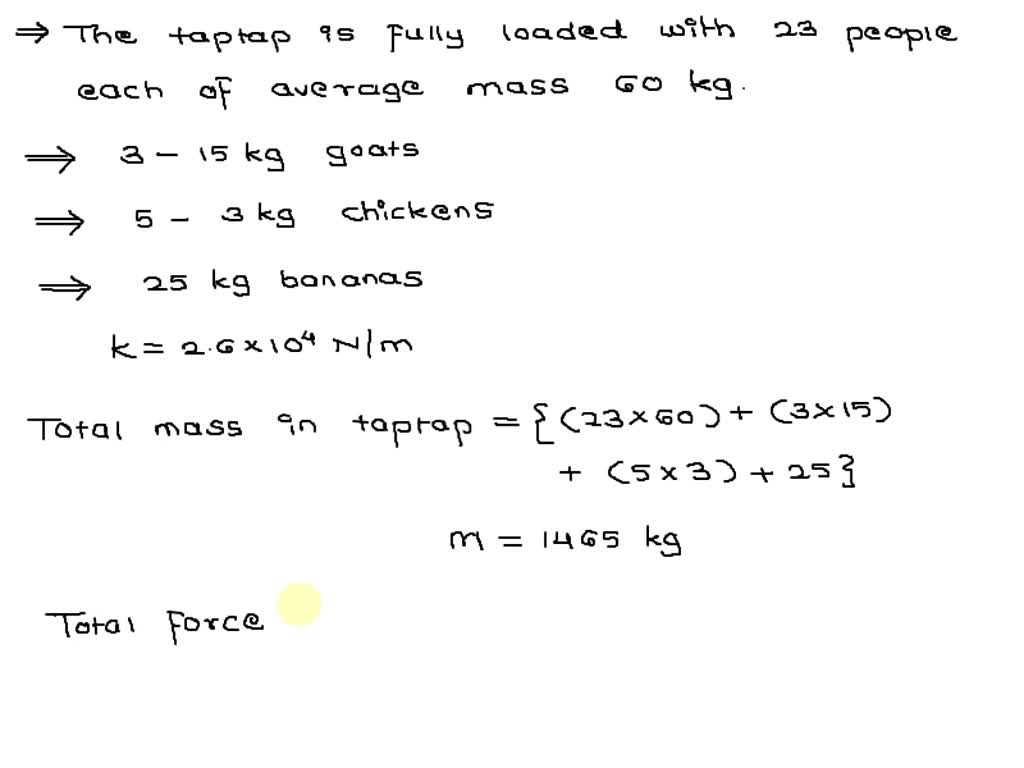 ⇒ The taptap is fully loaded with 23 people
each of average mass 60 kg.
⇒ 3 - 15 kg goats
⇒ 5 - 3 kg chickens
⇒ 25 kg bananas
k = 2.6×10⁴ N/m
Total mass in taptap = {(23×60) + (3×15)
+ (5×3) + 25}
m = 1465 kg
Total Force